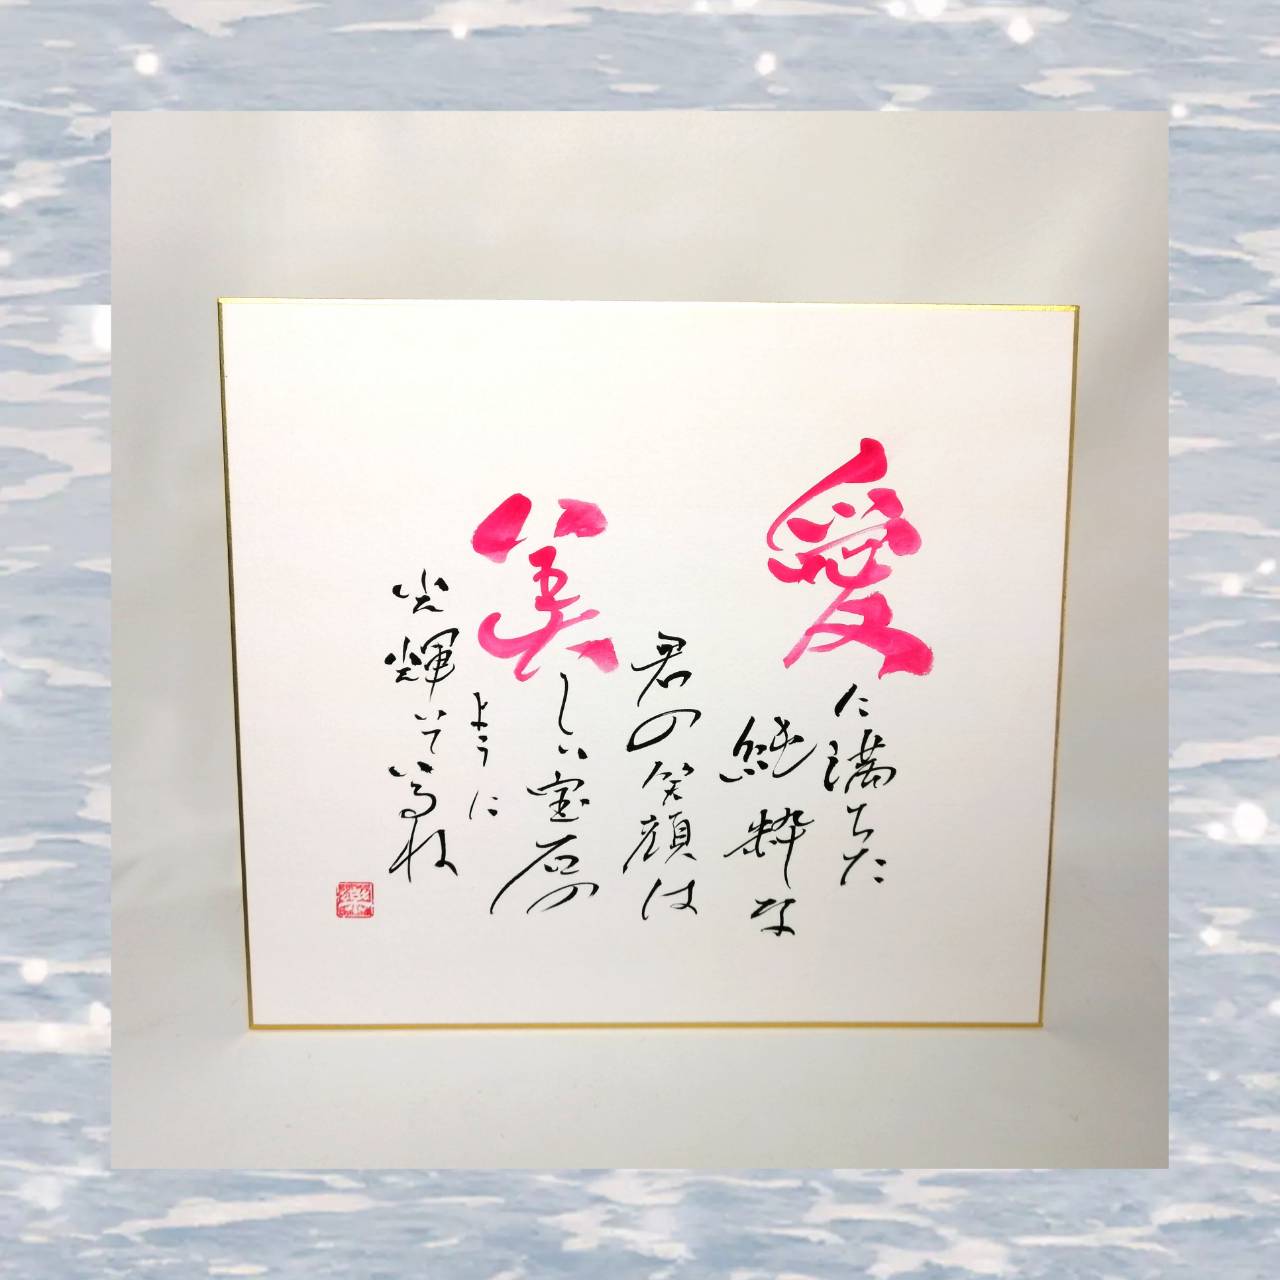 愛に満ちた
純粋な
君の笑顔は
美しい宝石の
ように
光輝いているね
楽